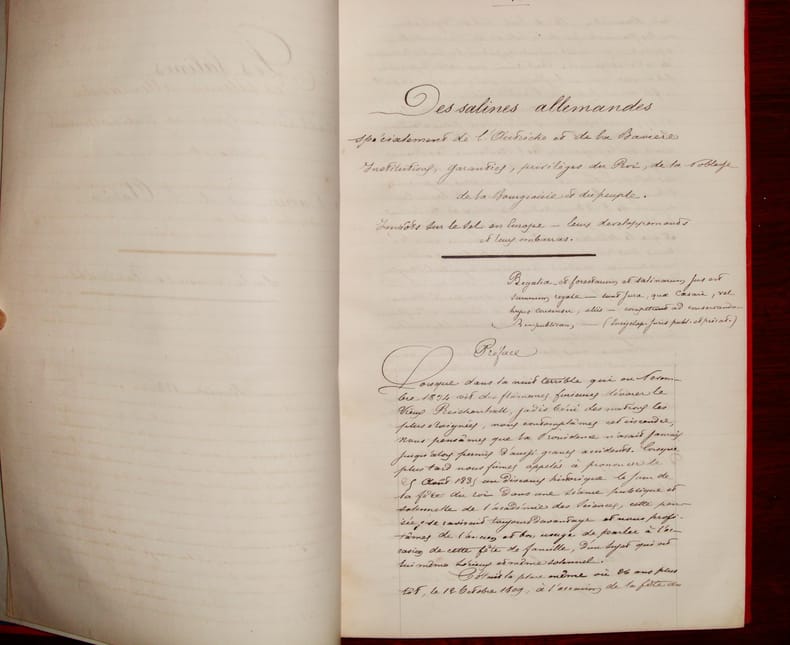 Des salines allemandes
spécialement de l'Autriche et de la Bavière
Institutions, garanties, privilèges du Roi, de la Noblesse
de la Bourgeoisie et du peuple.
Impôts sur le Sel en Europe — leurs développements
et leurs embarras.
Regalia et forestarum et salinarum jus est
summum regale — sunt jura, quæ Cæsari, vel
ejus — competunt ad conservandam
Rempublicam, — (juris publ. et privat.)
Préface
Lorsque dans la nuit terrible qui en Novem-
bre 1834 vit des flammes furieuses dévorer le
Vieux Reichenhall, jadis béni des nations les
plus éloignées, nous contemplâmes cet incendie,
nous pensâmes que la Providence n'avait jamais
jusqu'alors permis d'aussi graves accidents. Lorsque
plus tard nous fûmes appelés à prononcer le
25 Août 1835 un Discours historique le jour de
la fête du roi Dans une séance publique et
solennelle de l'académie des Sciences, cette pen-
sée, se ravivant toujours davantage et nous profi-
tâmes de l'ancien et bon usage de parler à l'oc-
casion de cette fête de famille, d'un sujet qui est
lui même sérieux et même solennel.
C'était la place même où 26 ans plus
tôt, le 12 Octobre 1809, à l'occasion de la fête du